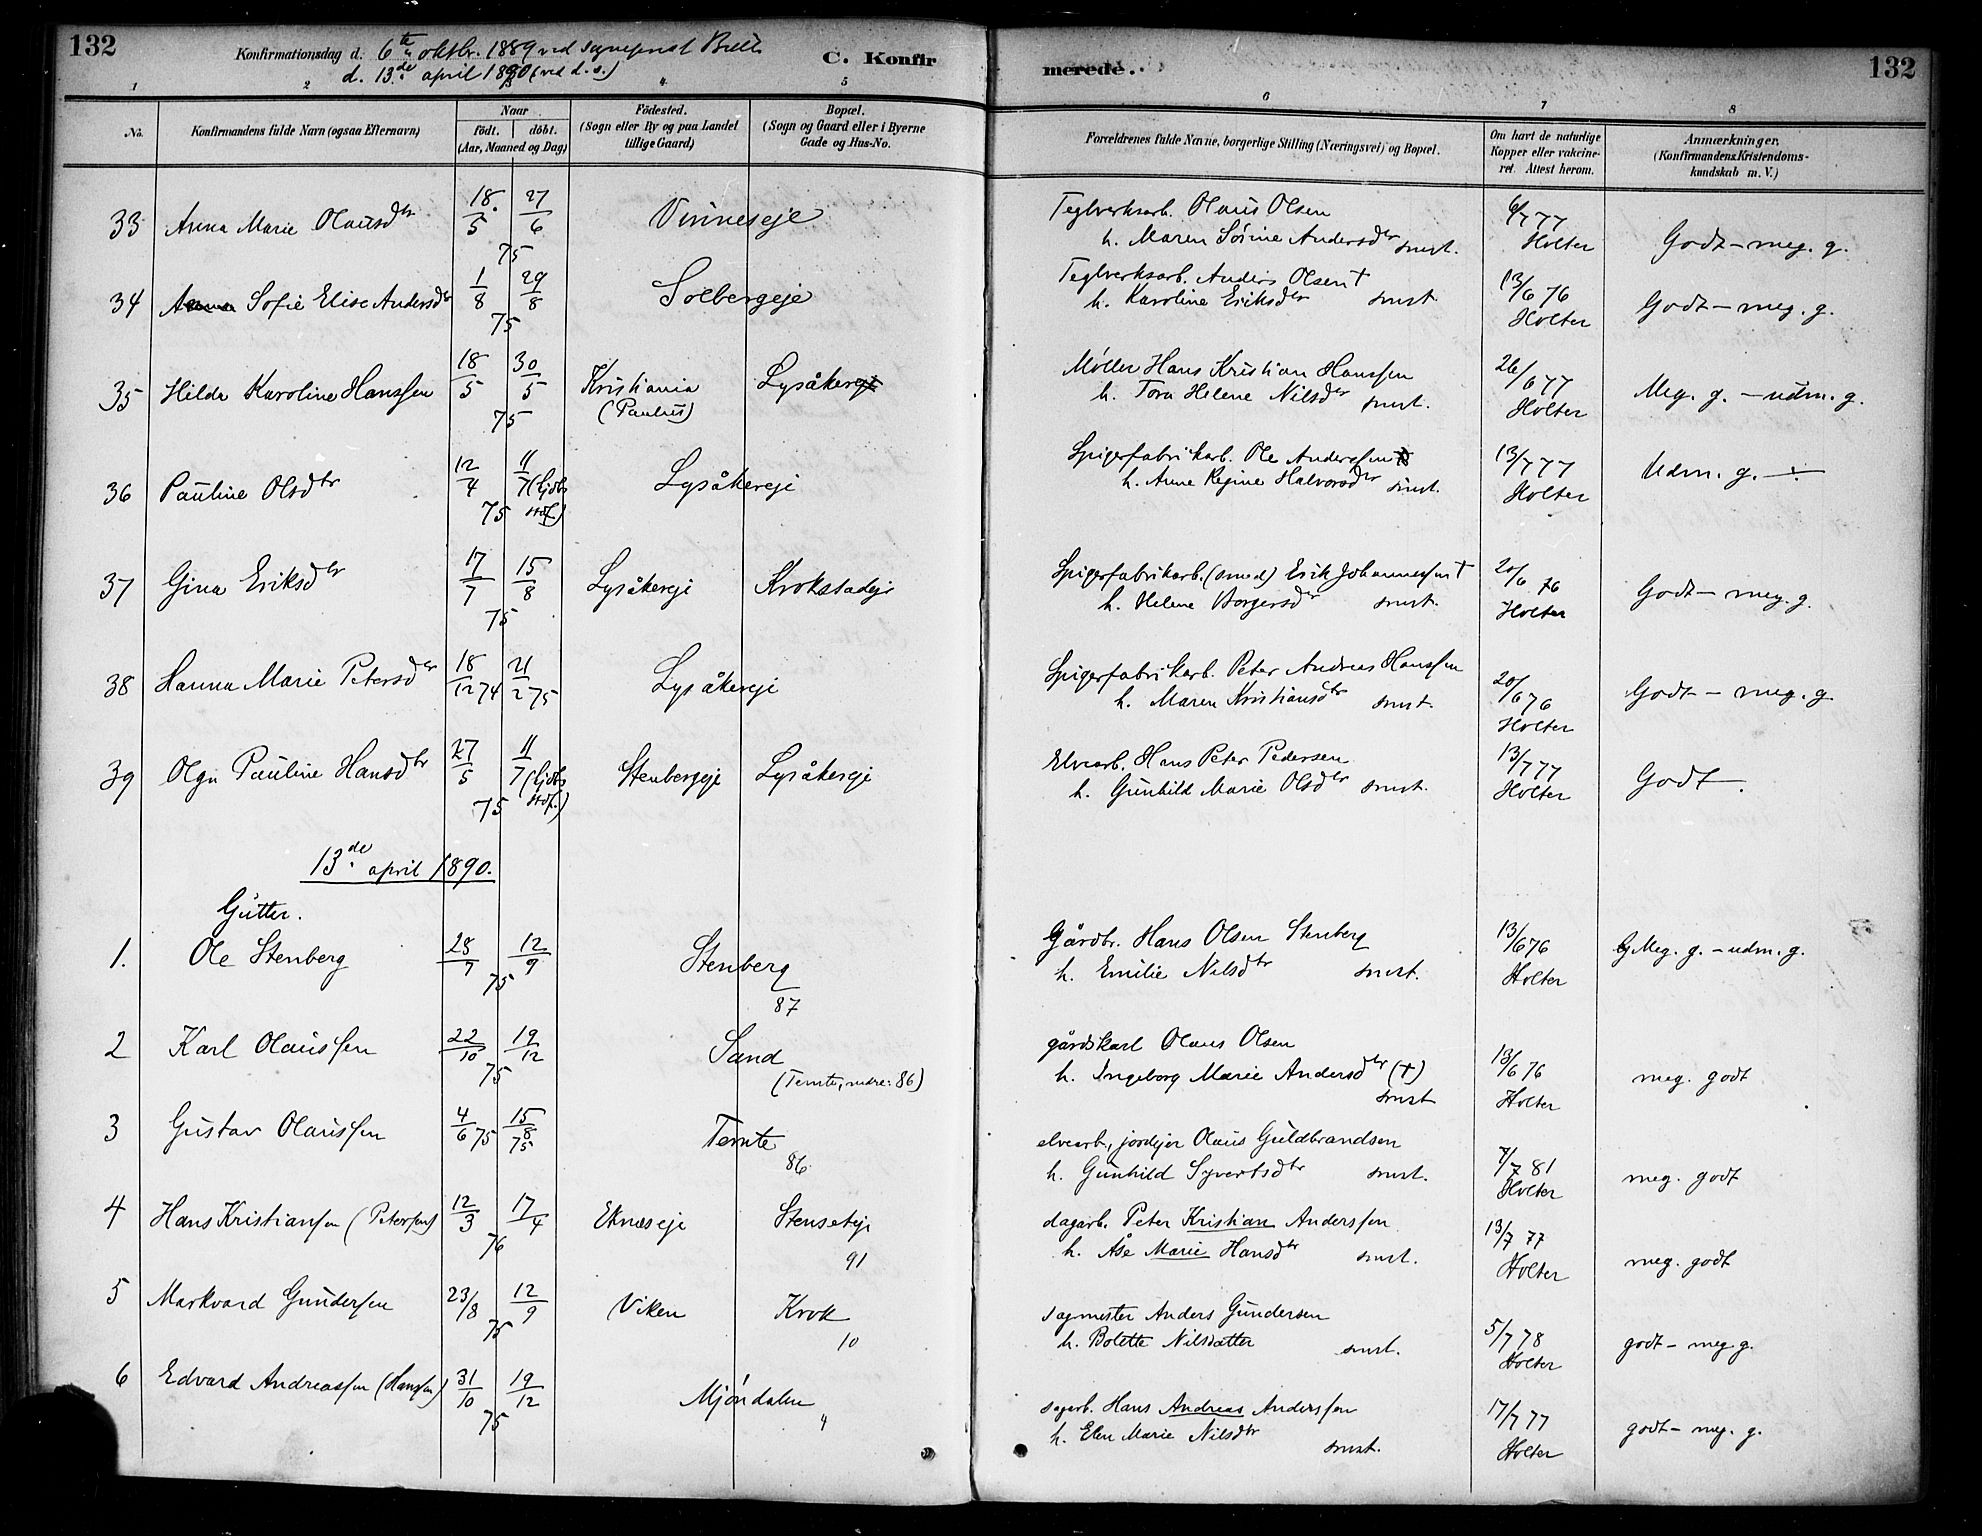 132
Konfirmationsdag d. 6te oktbr. 1889 ved sogneprest
d. 13de april 1890 (ved d. s.)
C. Konfir
merede.
132
1 2 3 4 5 6 7 8
No.
Konfirmandens fulde Navn (ogsaa Efternavn)
Naar
födt. döbt.
(Aar, Maaned og Dag)
Födested.
(Sogn eller By og paa Landet
tillige Gaard)
Bopæl.
(Sogn og Gaard eller i Byerne
Gade og Hus-No.
Forældrenes fulde Navne, borgerlige Stilling (Næringsvei) og Bopæl.
Om havt de naturlige
Kopper eller vakcine-
ret. Attest herom.
Anmærkninger.
(Konfirmandens Kristendoms-
kundskab m. V.)
33 Anna Marie Olausdtr 18/5 27/6 75 Vinneseje
Teglverksarb. Olaus Olsen
h. Maren Sörine Andersdtr smst.
6/7 77 Holter Godt – meg. g.
34 Anna Sofie Elise Andersdtr 1/8 29/8 75 Solbergeje
Teglverksarb. Anders Olsen †
h. Karoline Eriksdtr smst.
13/6 76 Holter Godt – meg. g.
35 Hilda Karoline Hanssen 18/5 30/5 75 Kristiania (Paulus) Lysåkereje
Møller Hans Kristian Hanssen
h. Tora Helene Nilsdtr smst.
26/6 77 Holter Meg. g. – udm. g.
36 Pauline Olsdtr 12/4 11/7 (hjdbt stdf.) 75 Lysåkereje
Spigerfabrikarb. Ole Anderssen
h. Anne Regine Halvorsdtr smst.
13/7 77 Holter Udm. g. –
37 Gina Eriksdtr 17/7 15/8 75 Lysåkereje Krokstadeje
Spigerfabrikarb. (smed) Erik Johannessen †
h. Helene Borgersdtr smst.
20/6 76 Holter Godt – meg. g.
38 Hanna Marie Petersdtr 18/12 74 21/2 75 Lysåkereje
Spigerfabrikarb. Peter Andreas Hanssen
h. Maren Kristiansdtr smst.
20/6 76 Holter Godt – meg. g.
39 Olga Pauline Hansdtr 27/5 11/7 (hjdbt stdf.) 75 Stenbergeje Lysåkereje
Elvearb. Hans Peter Pedersen
h. Gunhild Marie Olsdtr smst.
13/7 77 Holter Godt.
13de april 1890.
Gutter.
1. Ole Stenberg 28/7 12/9 75 Stenberg 87
Gårdbr. Hans Olsen Stenberg
h. Emilie Nilsdtr smst.
13/6 76 Holter Meg. g. – udm. g.
2 Karl Olaussen 22/10 19/12 75 Sand
(Temte, nedre: 86)
gårdskarl Olaus Olsen
h. Ingeborg Marie Andersdtr (†)
smst.
13/6 76 Holter meg. godt
3 Gustav Olaussen 4/6 75 15/8 75 Temte 86
elvearb., jordejer Olaus Guldbrandsen
h. Gunhild Syvertsdtr smst.
7/7 81 Holter meg. godt
4 Hans Kristiansen (Petersen) 12/3 17/4 76 Eknæseje Stenseteje 91
dagarb. Peter Kristian Anderssen
h. Åse Marie Hansdtr smst.
13/7 77 Holter meg. godt
5 Markvard Gundersen 23/8 12/9 75 Viken Krok 10
sagmester Anders Gundersen
h. Bolette Nilsdatter smst.
5/7 78 Holter godt – meg g.
6 Edvard Andreassen (Hanssen) 31/10 19/12 75 Mjöndalen 4
sagarb. Hans Andreas Anderssen
h. Elen Marie Nilsdtr
smst.
17/7 77 Holter godt – meg. g.